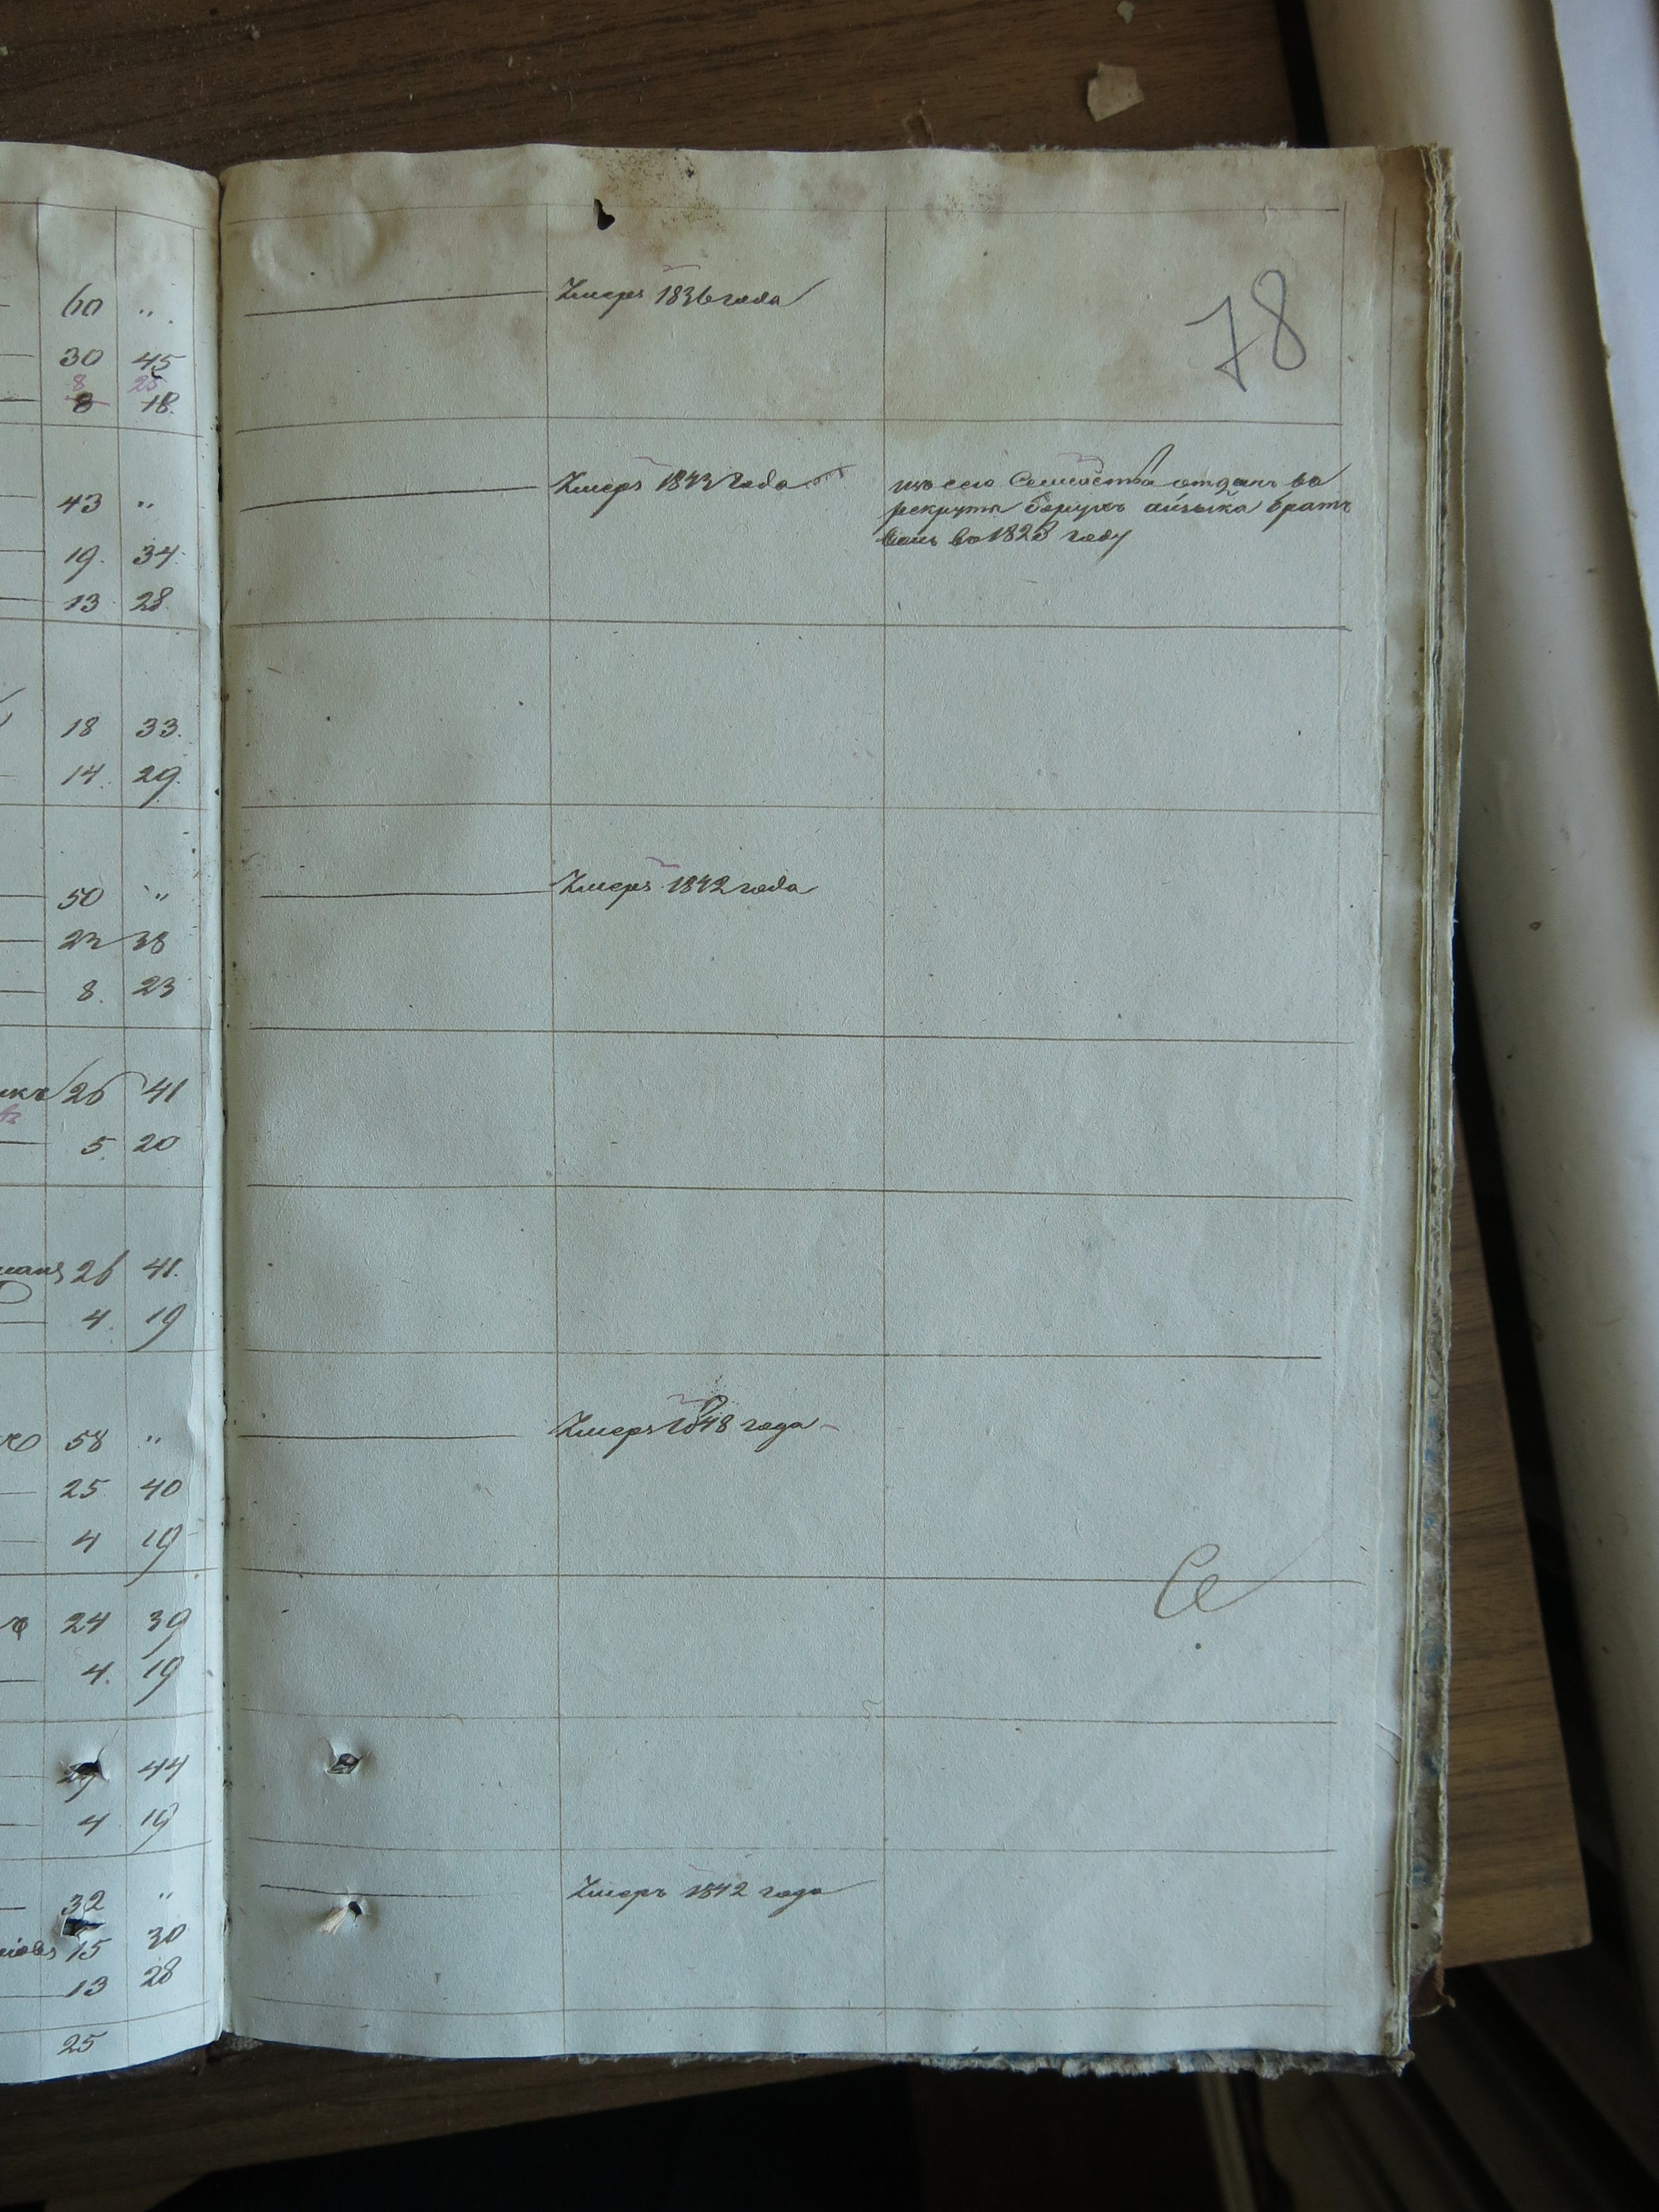 60 "
Умеръ 1836 года
78
30 45
8 25
8 18.
43 "
Умеръ 1843 года
изъ сего Семейства отданъ въ
рекруты Борухъ Айзыка братъ
въ 1828 году
19. 34.
13 28
18 33.
14. 29.
50 "
Умеръ 1842 года
23 38
8. 23
26 41
5. 20
26 41.
4. 19
58 "
Умеръ 1848 года
25 40
4 19
24 39
4. 19
29 44
4 19
32 "
Умеръ 1842 года
15 30
13 28
25